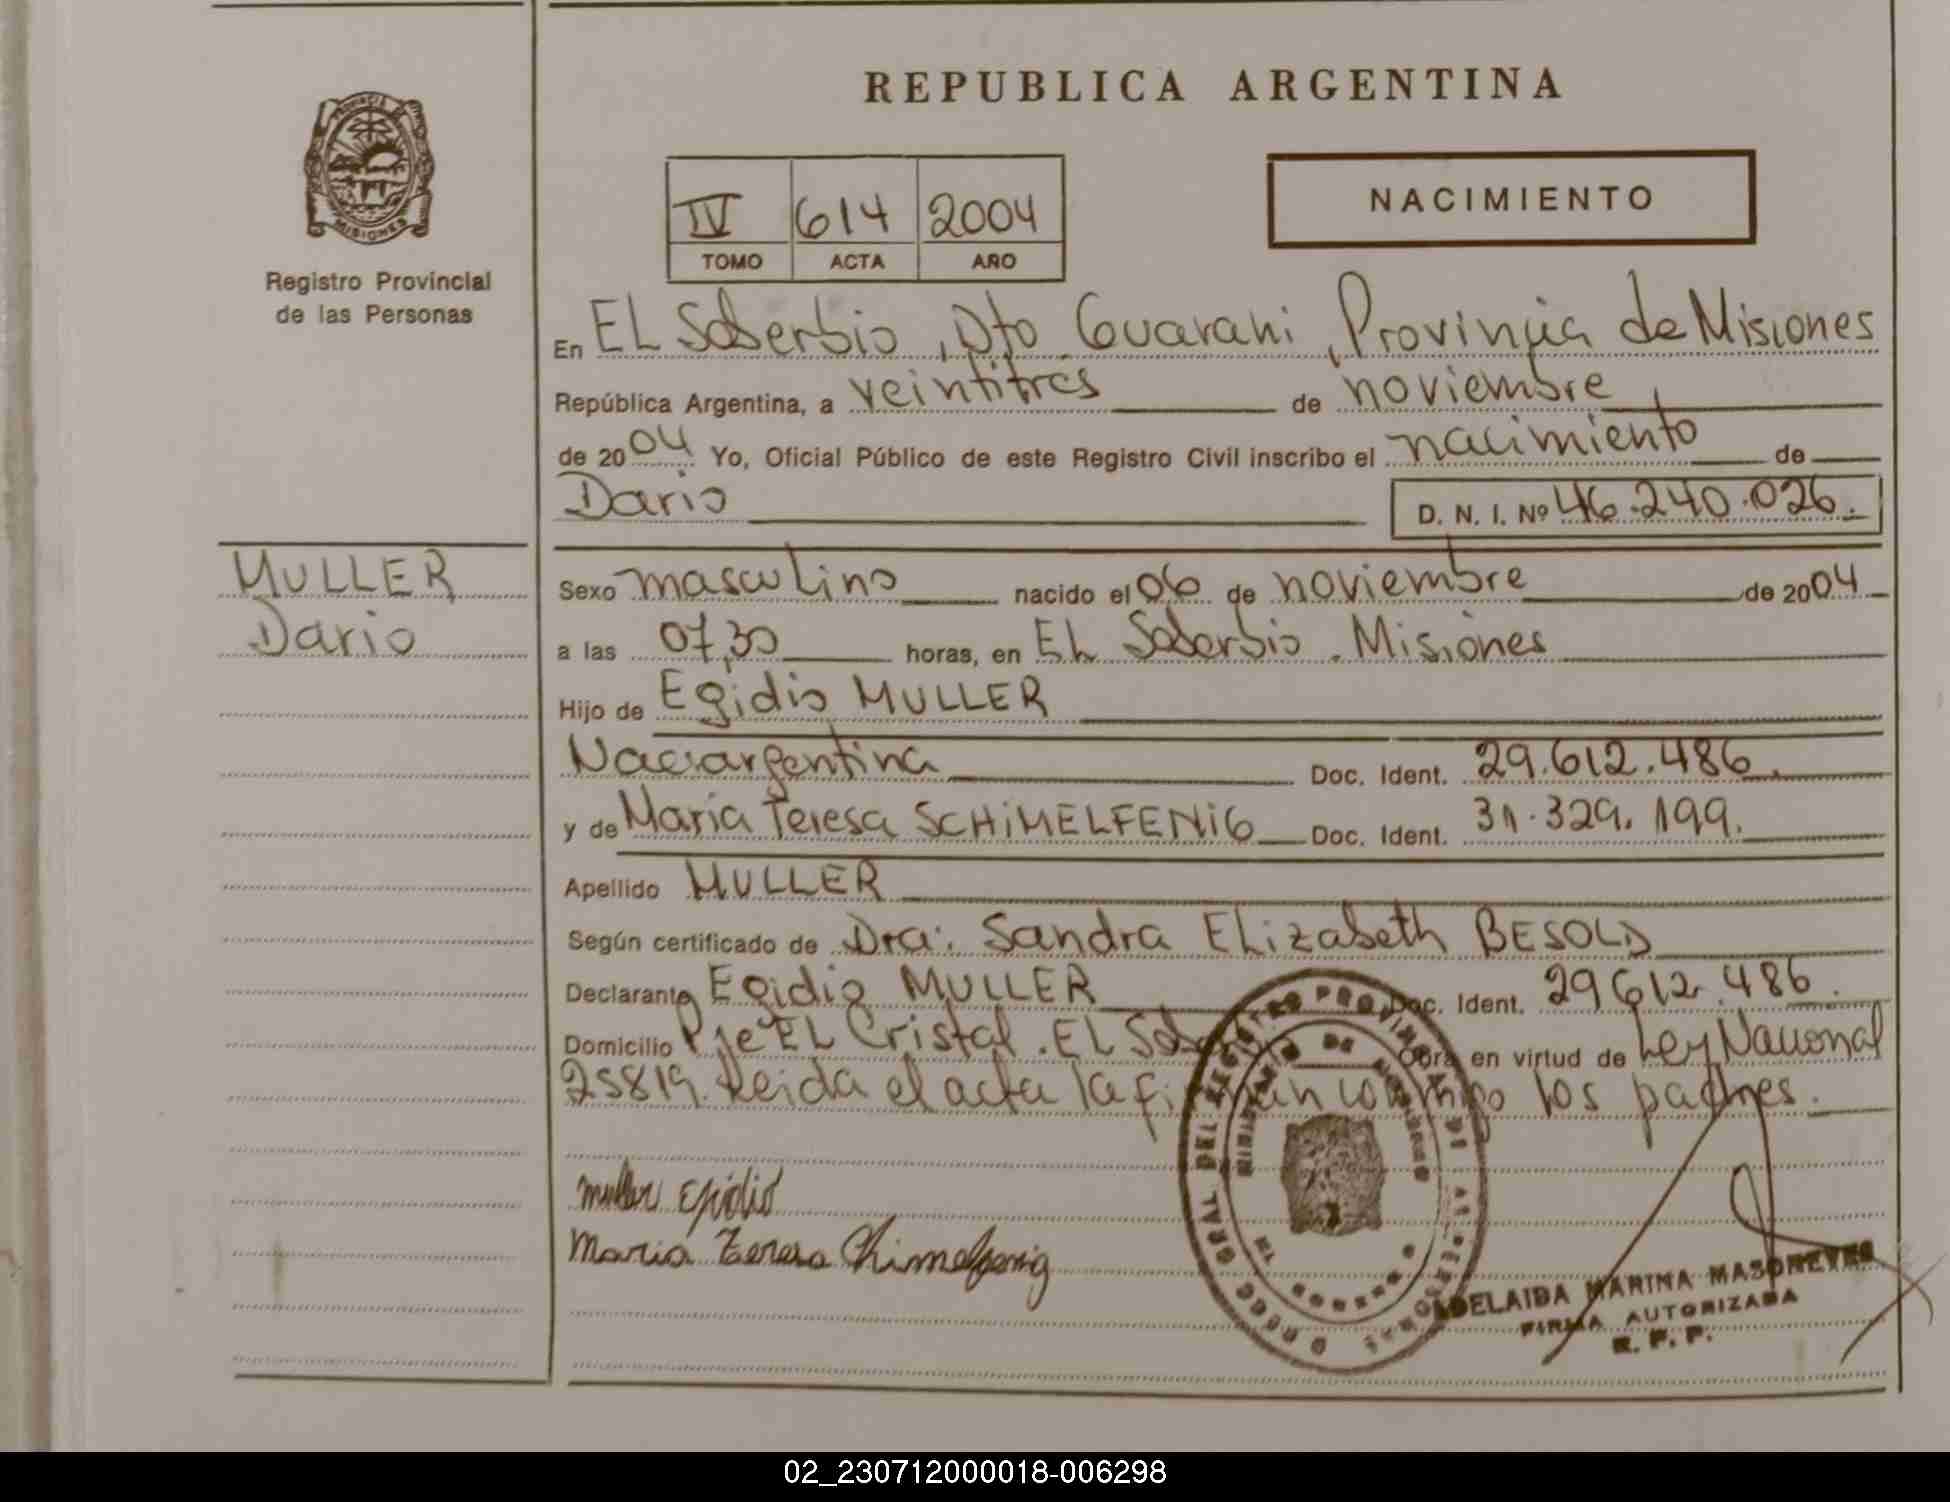 REPUBLICA ARGENTINA
PROVINCIA DE
MISIONES
Registro Provincial
de las Personas
IV 614 2004
TOMO ACTA AÑO
NACIMIENTO
En EL Soberbio, Dto Guarani, Provincia de Misiones
República Argentina, a veintitres de noviembre
de 2004 Yo, Oficial Público de este Registro Civil inscribo el nacimiento de
Dario D. N. I. Nº 46.240.026.
MULLER
Dario
Sexo masculino nacido el 06 de noviembre de 2004
a las 07,30 horas, en EL Soberbio. Misiones
Hijo de Egidio MULLER
Nac. argentina Doc. Ident. 29.612.486.
y de Maria Teresa SCHiMELFENiG Doc. Ident. 31.329.199.
Apellido MULLER
Según certificado de Dra: Sandra ELizabeth BESOLD
Declarante Egidio MULLER Doc. Ident. 29612.486.
Domicilio Pje EL Cristal. EL Soberbio Obra en virtud de Ley Nacional
25819. Leida el acta la firman conmigo los padres.
muller Egidio
Maria Teresa Chimelfenig
DIRECC GRAL DEL REGISTRO PROVINCIAL DE LAS PERSONAS
MINISTERIO DE GOBIERNO
MISIONES
ADELAIDA MARINA MASONEYRE
FIRMA AUTORIZADA
R. P. P.
02_230712000018-006298